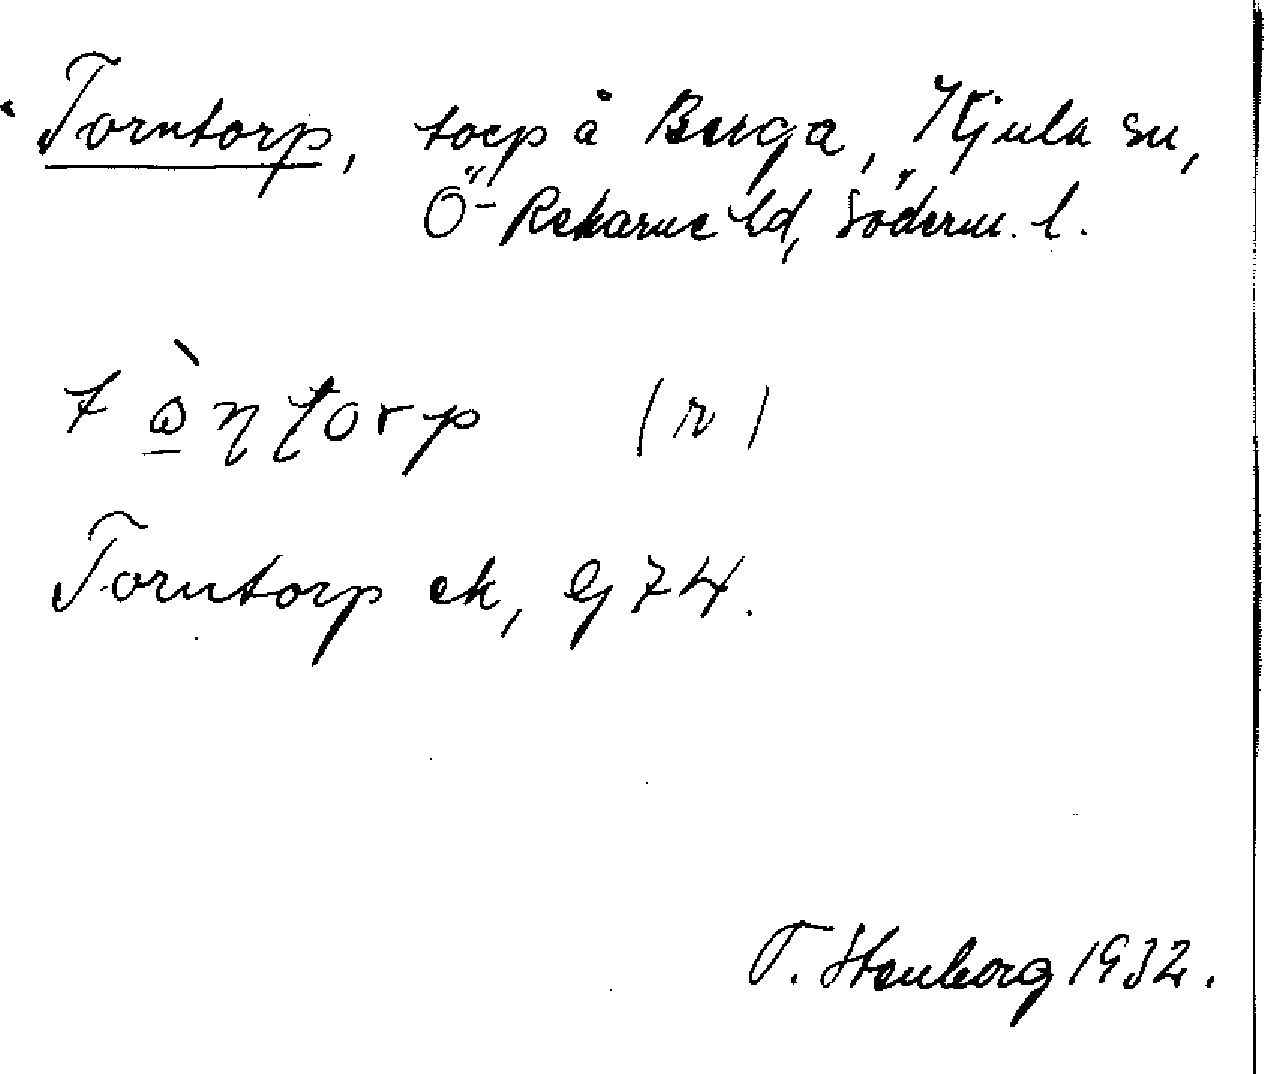 Torntorp, torp å Berga, Kjula sn,
Ö-Rekarne hd, Söderm. l.
tɷ̀ɳʈorp (r)
Torntorp ek, Gj 74.
T. Stenborg 1932.